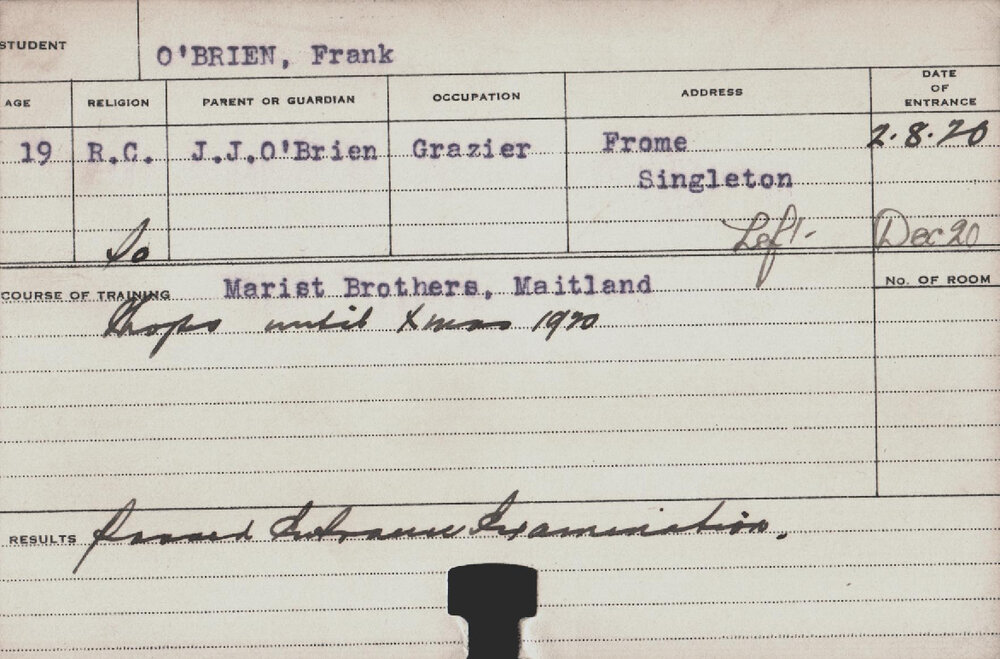 STUDENT O'BRIEN, Frank
AGE RELIGION PARENT OR GUARDIAN OCCUPATION ADDRESS DATE OF ENTRANCE
19 R.C. J.J.O'Brien Grazier Frome 2.8.20
Singleton
Left- Dec 20
COURSE OF TRAINING Marist Brothers, Maitland No. OF ROOM
until Xmas 1920
RESULTS Passed Entrance Examination.